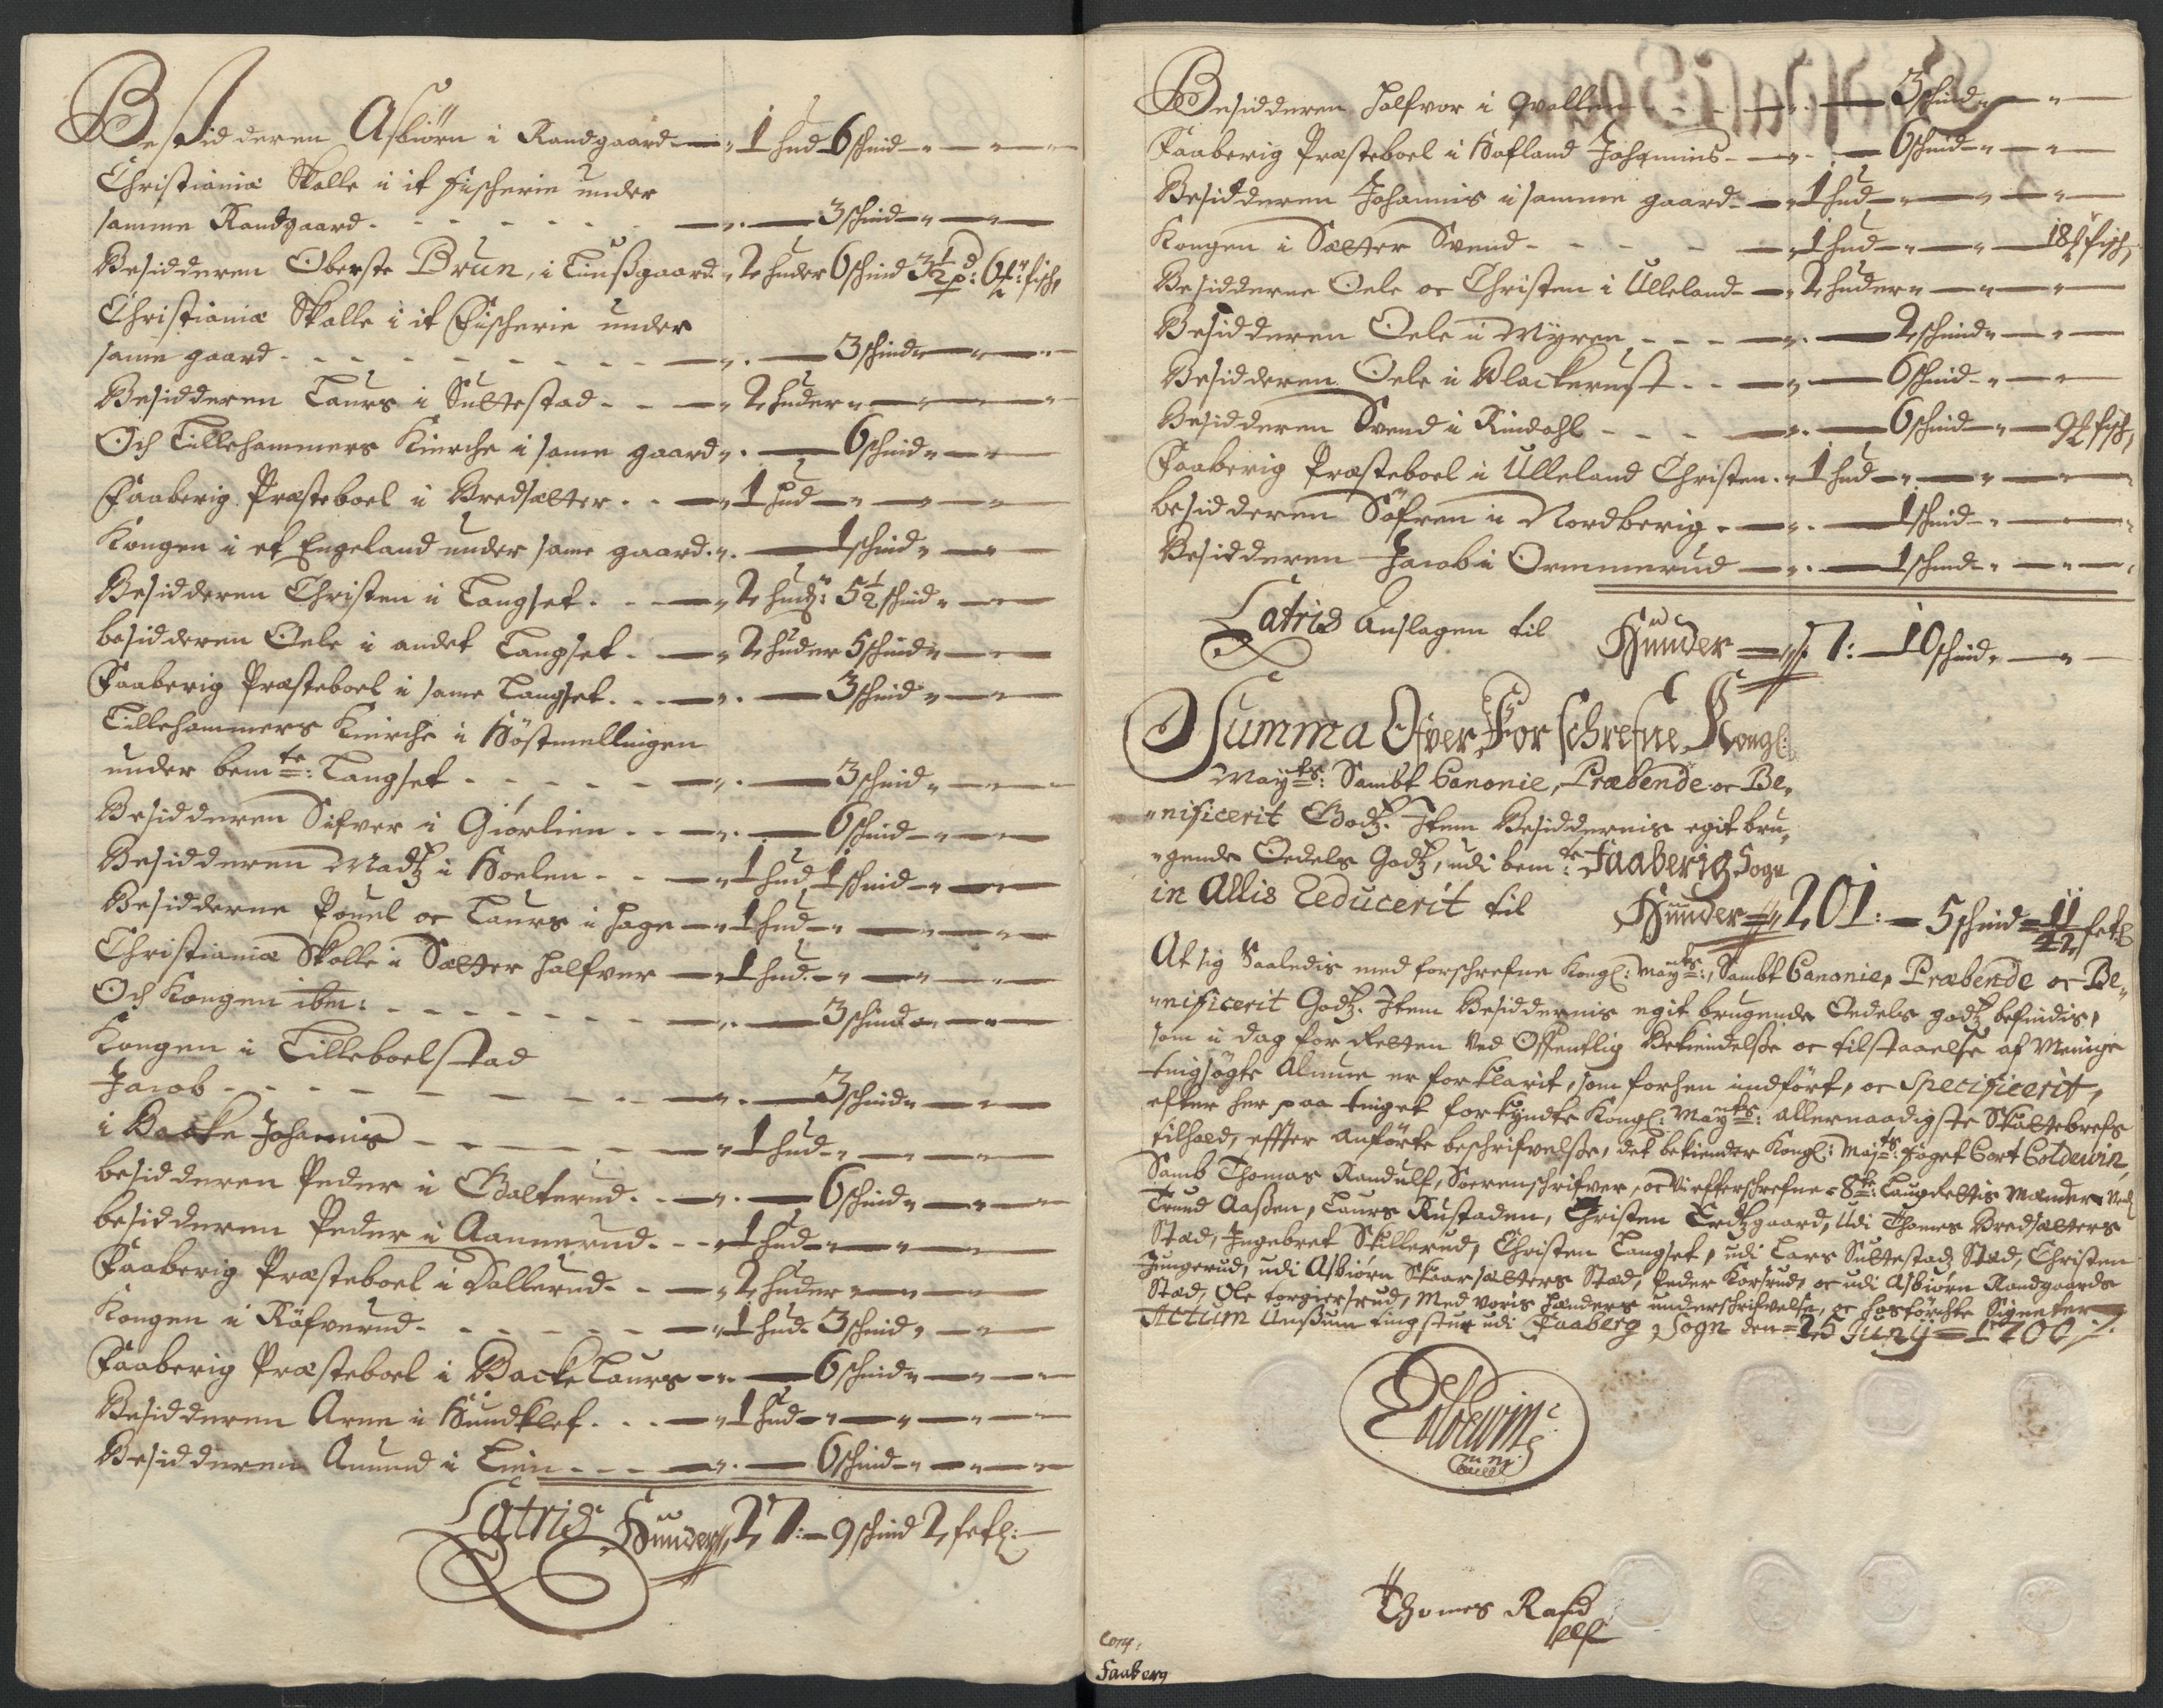 Besidderen Asbiørn i Randgaard — " 1 hud 6 schind — " — " —
Christianiæ Skolle i it fischerie under
samme Randgaard - - - - - — " — 3 schind — " — " —
Besidderen Oberste Brun, i Lunßgaard " 2 huder 6 schind 3½ p: 6 f: fisch,
Christianiæ Skolle i it Fischerie under
same gaard - - - - - — " — 3 schind — " — " —
Besidderen Laurs i Suttestad - - — " 2 huder " — " — " —
Och Lillehammers Kirche i same gaard " — 6 schind " — " —
Faaberig Præsteboel i Bredsætter - - — " 1 hud — " — " — " —
Kongen i et Engeland under same gaard " — 1 schind " — " —
Besidderen Christen i Langset - - — " 2 hud: 5½ schind " — " —
besidderen Oele i andet Langset - — " 2 huder 5 schind " — " —
Faaberig Præsteboel i same Langset - - — " — 3 schind " — " —
Lillehammers Kirche i Høstmellingen
under bemte: Langset - - - - - — " — 3 schind " — " —
Besidderen Sifver i Giørlien - - — " — 6 schind — " — " —
Besidderen Madtz i Hoelen - - — " 1 hud 1 schind — " — " —
Besidderne Pouel oc Laurs i Hage — " 1 hud — " — " — " —
Christianiæ Skolle i Sætter Halfver — " 1 hud — " — " — " —
Och Kongen ibm: - - - - - - — " — 3 schind — " — " —
Kongen i Lilleboelstad
Jacob - - - - - - - — " — 3 schind " — " —
i Backe Johannis - - - - — " 1 hud — " — " — " —
besidderen Peder i Balterud - - — " — 6 schind " — " —
besidderen Peder i Aannerud - - — " 1 hud — " — " — " —
Faaberig Præsteboel i Dallerud - — " 2 huder " — " — " —
Kongen i Röfverud - - - - — " 1 hud 3 schind " — " —
Faaberig Præsteboel i Backe Laurs — " — 6 schind " — " —
Besidderen Arne i Hundklef - - — " 1 hud — " — " — " —
Besidderen Amund i Lien - - — " — 6 schind — " — " —
Latris Huuder " 27: — 9 schind 2 fetl: —
Besidderen Halfvor i Qvollen - - — " — 3 schind — " —
Faaberig Præsteboel i Hofland Johannis - — " — 6 schind — " — " —
Besidderen Johannis i samme gaard - — " 1 hud — " — " — " —
Kongen i Sætter Svend - - - — " 1 hud — " — " — 18 f fisch,
Besidderne Oele oc Christen i Ulleland - — " 2 huder " — " — " —
Besidderen Oele i Myren - - - — " — 2 schind " — " —
Besidderen Oele i Blackerust - - — " — 6 schind — " — " —
Besidderen Svend i Rindahl - - - — " — 6 schind — " — 9 f fisch,
Faaberig Præsteboel i Ulleland Christen - " 1 hud — " — " — " —
besidderen Söfren i Nordberig - — " — 1 schind — " — " —
Besidderen Jacob i Ormmerud — " — 1 schind — " — " —
Latris Anslagen til Huuder — " 7: — 10 schind " — " —
Summa Ofver For schrefne Kongl:
Mayts: Sambt Canonie, Præbende oc Be„
„nificerit Godtz. Item Besiddernis egit bru„
„gende Oedels Godtz, udi bemte: Faaberig Sogn
in Allis Eeducerit til Huuder — " 201: — 5 schind — 11/22 fetl
At sig Saaledis med forschrefne Kongl: Mayts:, Sambt Canonie, Præbende oc Be„
„nificerit Godtz. Item Besiddernis egit brugende Oedels godtz befindis,
som i dag for Retten ved Offentlig Bekiendelße oc tilstaaelse af Menige
tingsøgte Almue er forklarit, som forhen indført, oc Specificerit,
efter her paa tinget forkyndte Kongl: Mayts: allernaadigste Skattebrefs
tilhold, effter anførte beschrifvelße, det bekiender Kongl: Mayts: foget Cort Coldewin,
Samb Thomas Randulf, Soerenschrifver, oc Vi effterschrefne 8te: Laugrettis Mænder Nefl
Trund Aaßen, Laurs Rustaden, Christen Tedtzgaard, Udi Thomes Bredsætters
Stæd, Ingebret Skillerud, Christen Langset, udi Lars Suttestadz Stæd, Christen
Jungerud, udi Asbiørn Skaarsætters Stæd, Peder Korsrud, oc udi Asbiørn Randgaards
Stæd, Ole torgiersrud, Med voris hænders underschrifvelse, oc hostørchte Signeter
Actum Unßum tingstue udi Faaberg Sogn den 25 Juny = 1700 /.
Coldewin
Thomes Rand
ulf
Conf:
Faaberg